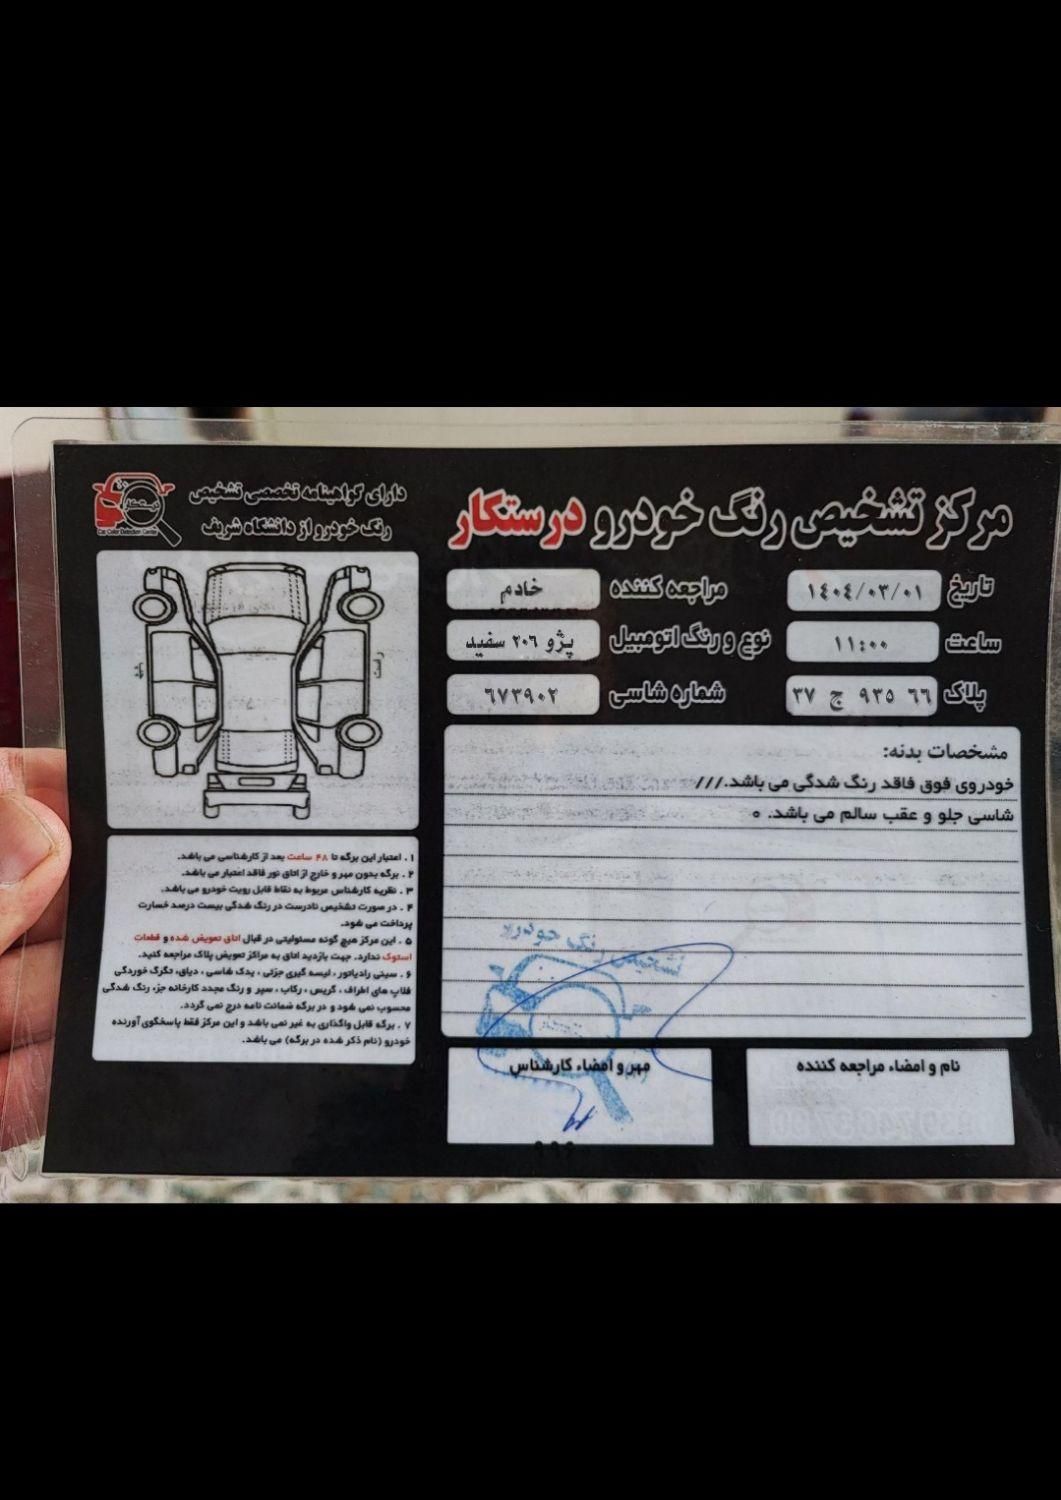 مرکز تشخیص رنگ خودرو درستکار
دارای گواهینامه تخصصی تشخیص
رنگ خودرو از دانشگاه شریف
درستکار
Car Color Detection Center
تاریخ ۱۴۰۴/۰۳/۰۱
مراجعه کننده خادم
ساعت ۱۱:۰۰
نوع و رنگ اتومبیل پژو ۲۰۶ سفید
پلاک ۶۶ ۹۳۵ ج ۳۷
شماره شاسی ۶۷۳۹۰۲
مشخصات بدنه:
خودروی فوق فاقد رنگ شدگی می باشد.///
شاسی جلو و عقب سالم می باشد. ۰
۱. اعتبار این برگه تا ۴۸ ساعت بعد از کارشناسی می باشد.
۲. برگه بدون مهر و خارج از اتاق نور فاقد اعتبار می باشد.
۳. نظریه کارشناس مربوط به نقاط قابل رویت خودرو می باشد.
۴. در صورت تشخیص نادرست در رنگ شدگی بیست درصد خسارت
پرداخت می شود.
۵. این مرکز هیچ گونه مسئولیتی در قبال اتاق تعویض شده و قطعات
استوک ندارد. جهت بازدید اتاق به مراکز تعویض پلاک مراجعه کنید.
۶. سینی رادیاتور، لیسه گیری جزئی، یدک شاسی، دیاق، تگرگ خوردگی
فلاپ های اطراف، گریس، رکاب، سپر و رنگ مجدد کارخانه جزء رنگ شدگی
محسوب نمی شود و در برگه ضمانت نامه درج نمی گردد.
۷. برگه قابل واگذاری به غیر نمی باشد و این مرکز فقط پاسخگوی آورنده
خودرو (نام ذکر شده در برگه) می باشد.
تشخیص رنگ خودرو
نام و امضاء مراجعه کننده
مهر و امضاء کارشناس